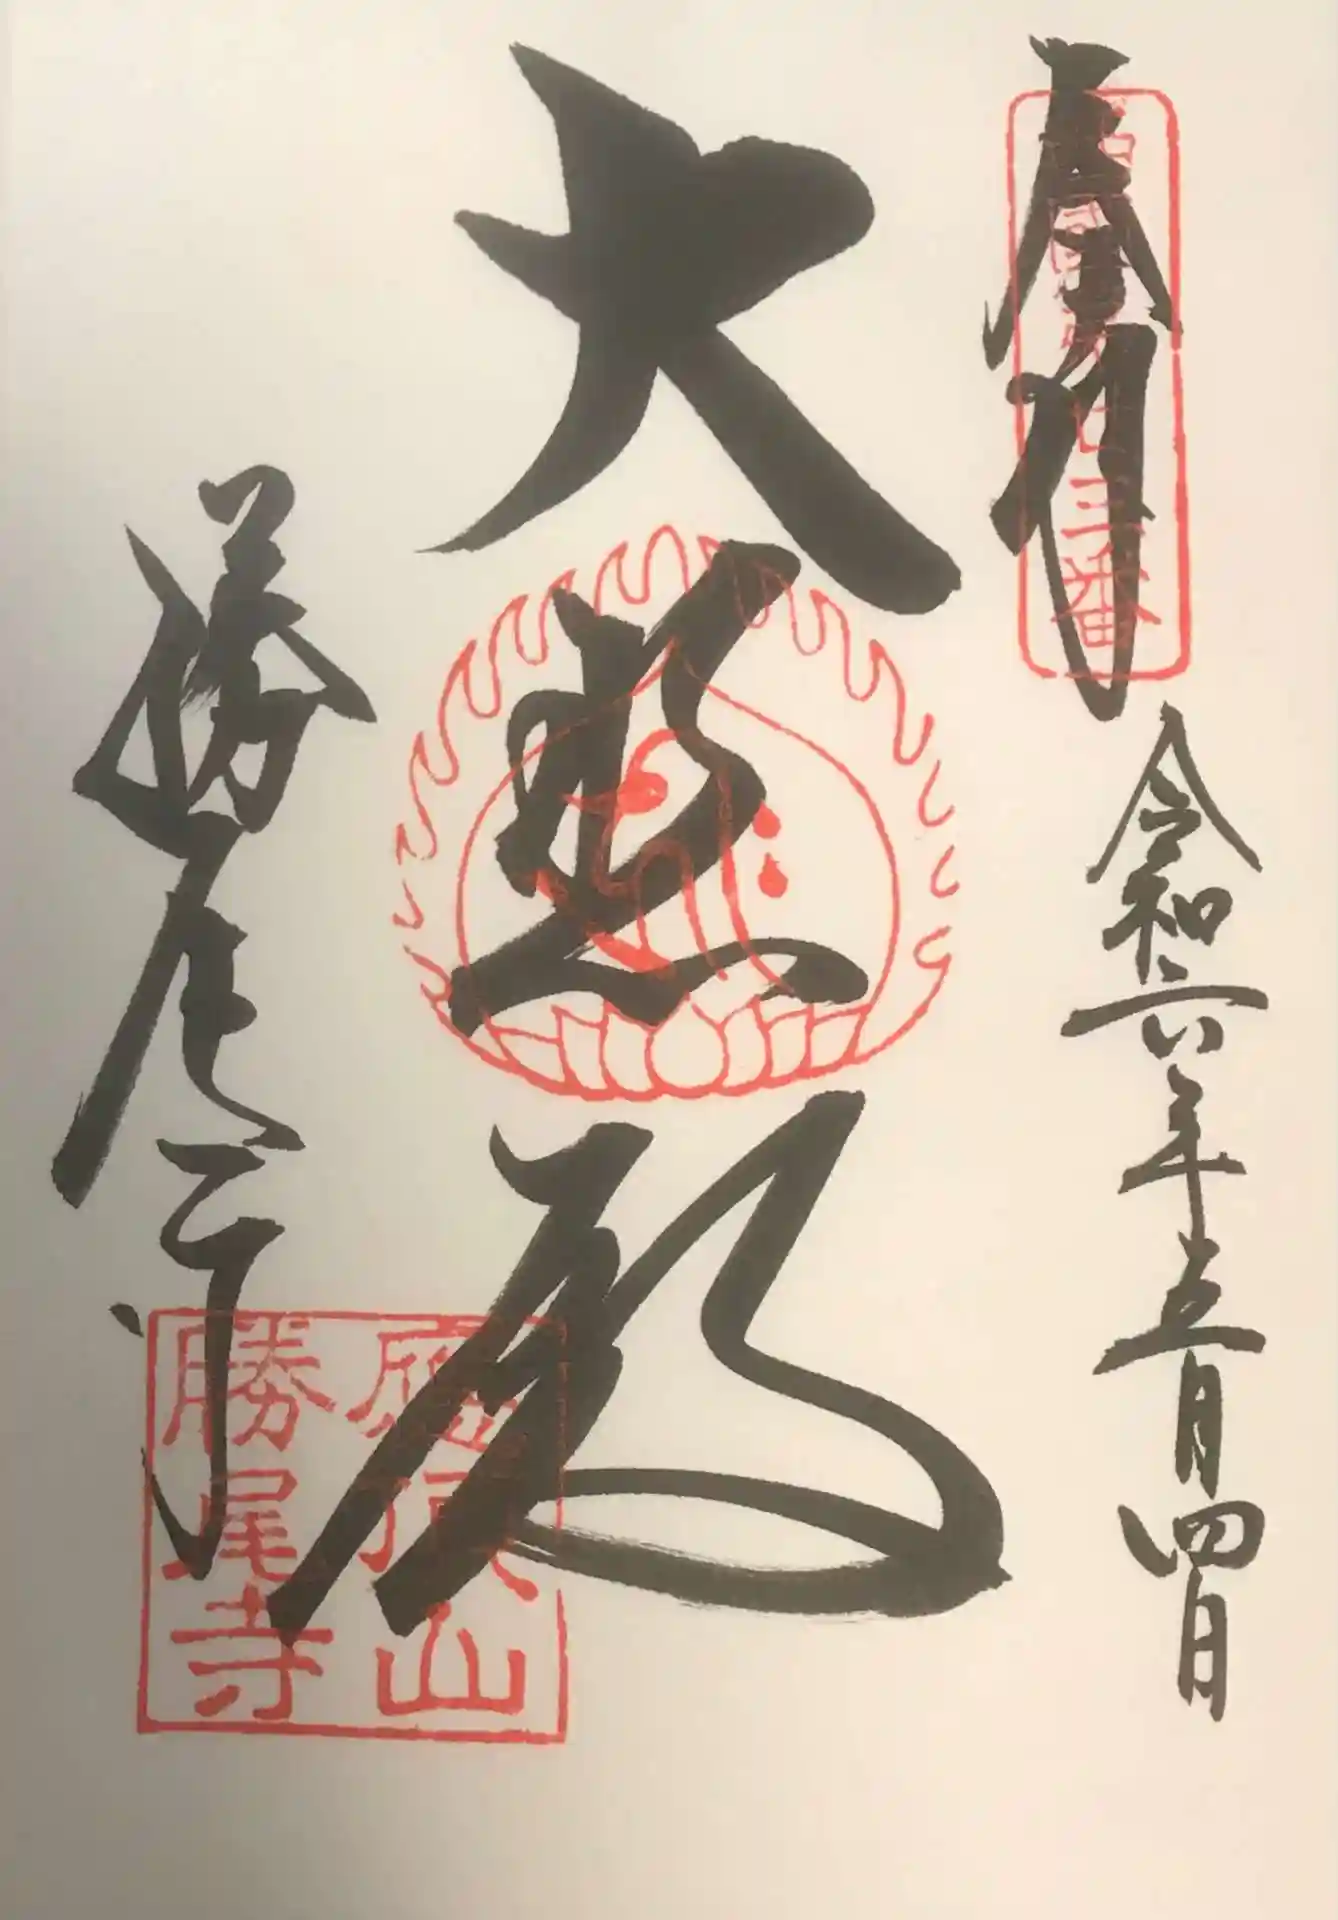 奉拝
西国第廿三番
令和六年五月四日
大悲殿
勝尾寺
應頂山
勝尾寺